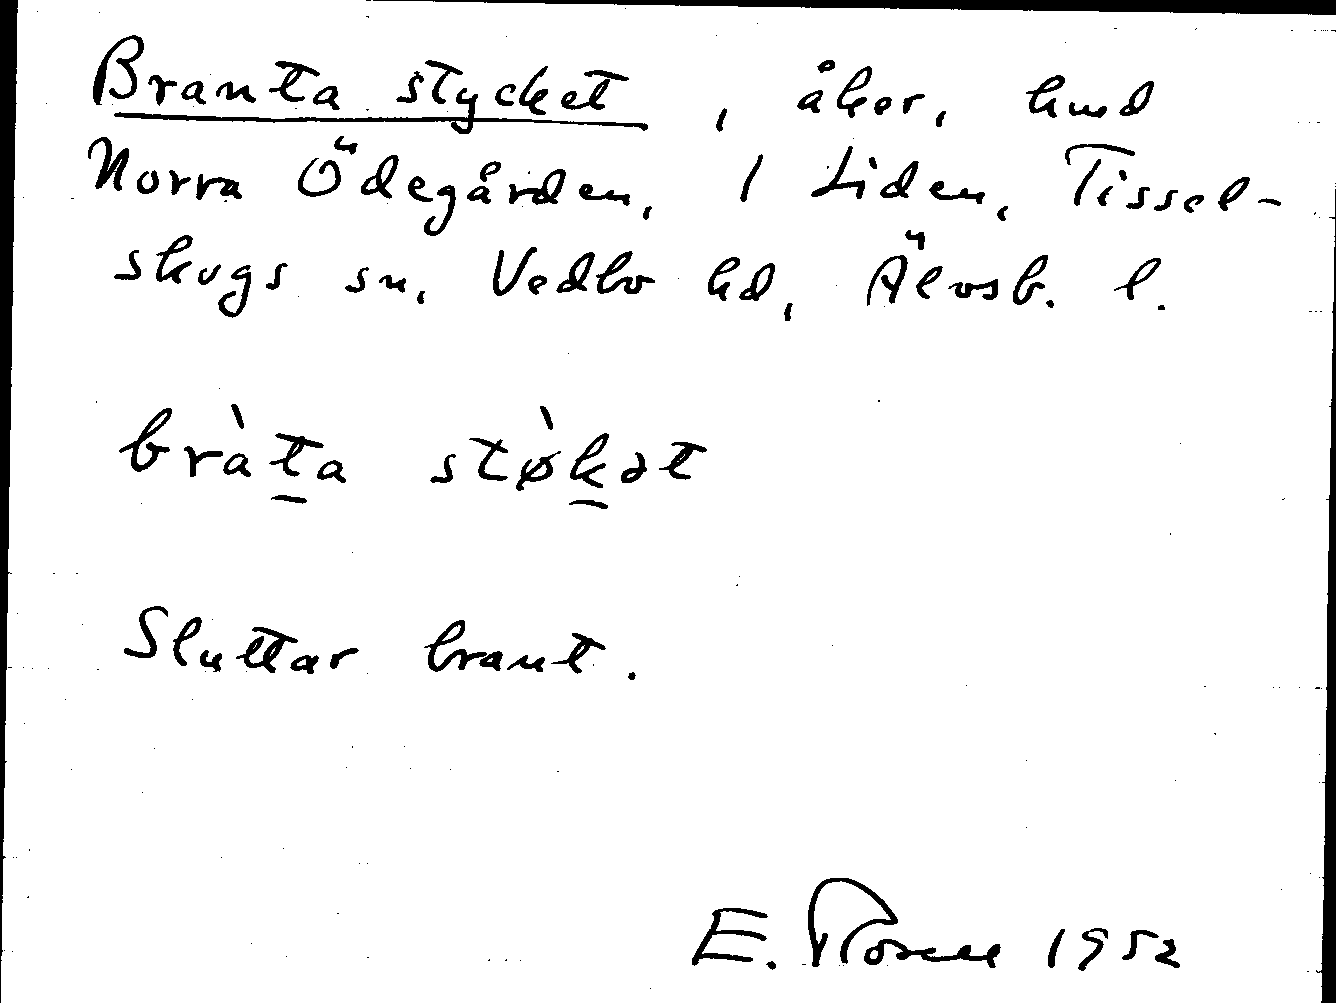 Branta stycket, åker, hmd
Norra Ödegården, 1 Liden, Tissel-
skogs sn, Vedbo hd, Älvsb. l.
bràta stø̀kət
Sluttar brant.
E. Rosell 1952